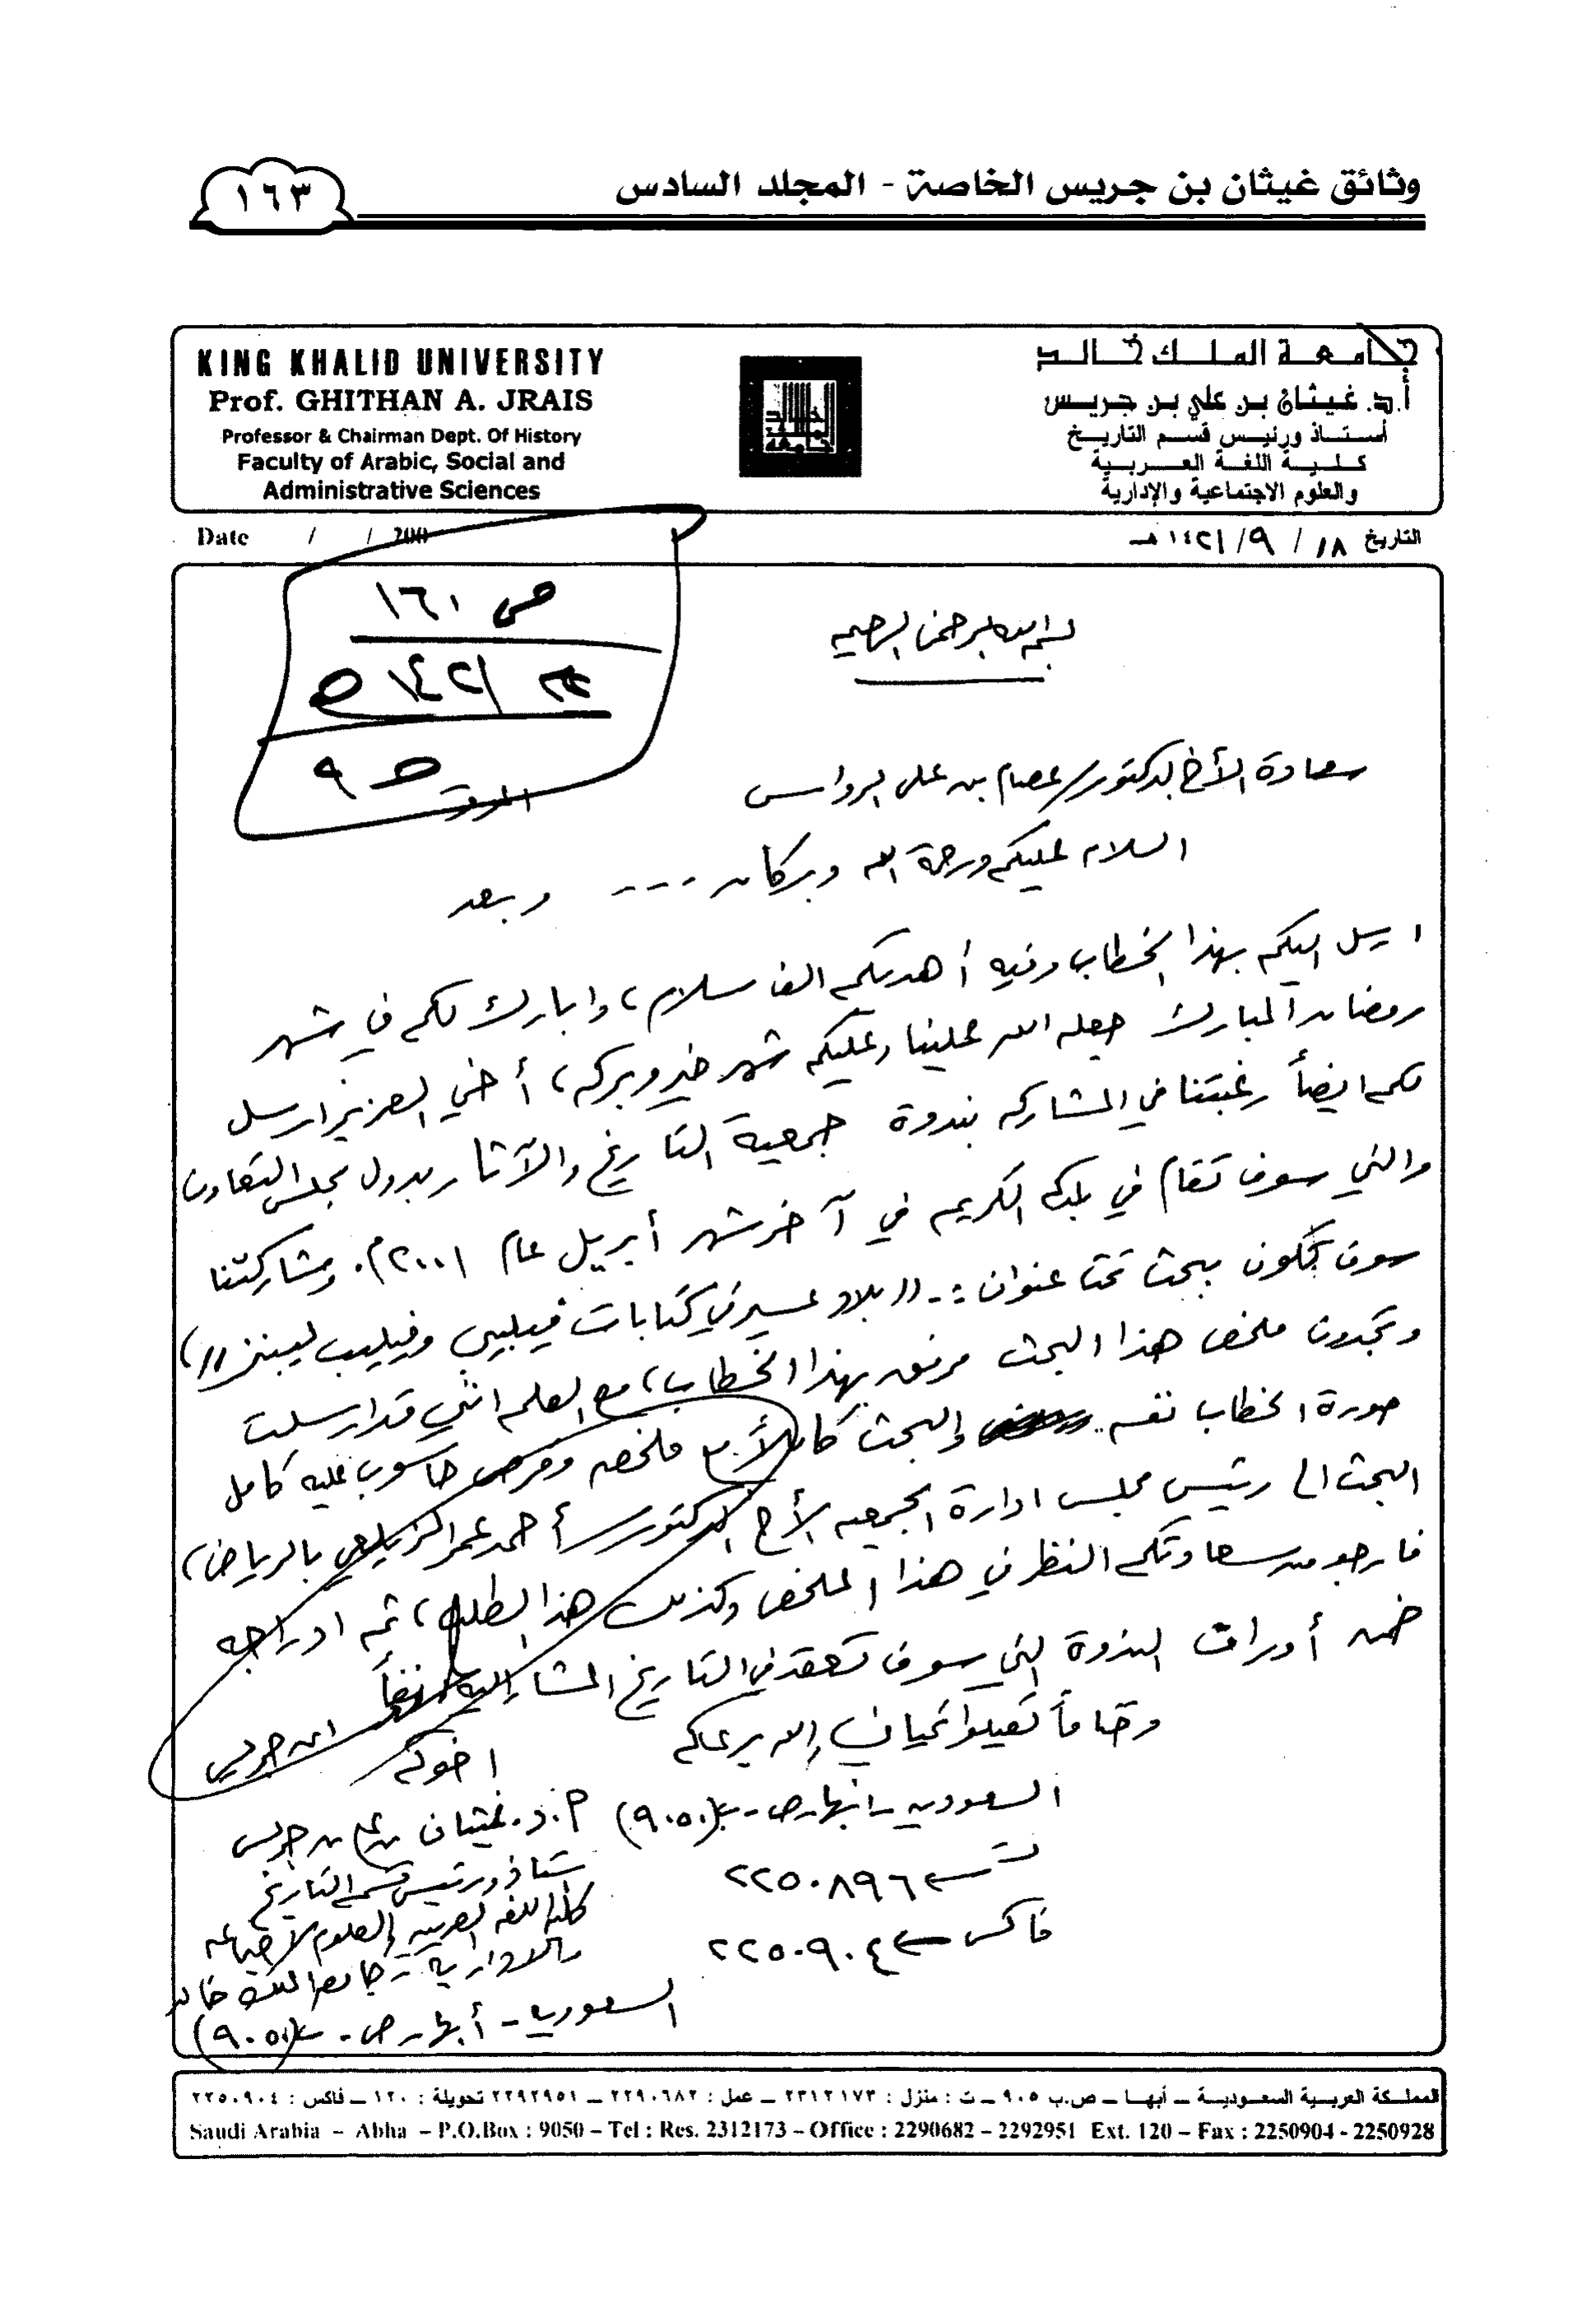 وثائق غيثان بن جريس الخاصة - المجلد السادس
١٦٣
KING KHALID UNIVERSITY
Prof. GHITHAN A. JRAIS
Professor & Chairman Dept. Of History
Faculty of Arabic, Social and
Administrative Sciences
جامعة الملك خالد
أ.د. غيثان بن علي بن جريس
أستاذ ورئيس قسم التاريخ
كلية اللغة العربية
والعلوم الاجتماعية والإدارية
Date / / 200
التاريخ ١٨ / ٩ / ١٤٢١ هـ
ص ١٦١
١٤٢١ هـ
ص ٩
بسم الله الرحمن الرحيم
سعادة الأخ الدكتور/ عصام بن علي الرواس الموقر
السلام عليكم ورحمة الله وبركاته --- وبعد
ارسل اليكم بهذا الخطاب وفيه أهديكم الف سلام، وابارك لكم في شهر
رمضان المبارك جعله الله علينا وعليكم شهر خير وبركه، أخي العزيز ارسل
لكم ايضاً رغبتنا في المشاركه بندوة جمعية التاريخ والآثار بدول مجلس التعاون
والتي سوف تقام في بلدكم الكريم في آخر شهر أبريل عام ٢٠٠١م. ومشاركتنا
سوف تكون ببحث تحت عنوان :- ((بلاد عسير في كتابات فيلبي وفيليب ليبنز))،
وتجدون ملخص هذا البحث مرفق بهذا الخطاب، مع العلم انني قد ارسلت
صورة الخطاب نفسه والبحث كاملاً مع ملخصه وقرص حاسوب عليه كامل
البحث الى رئيس مجلس ادارة الجمعيه الأخ الدكتور/ أحمد عمر الزيلعي بالرياض،
فارجو من سعادتكم النظر في هذا الملخص وكذلك هذا الطلب، ثم ادراجه
ضمن أوراق الندوة التي سوف تعقد في التاريخ المشار اليه آنفاً
وختاماً تقبلوا تحياتي والله يرعاكم
اخوكم ابن جريس
أ.د. غيثان بن علي بن جريس
استاذ ورئيس قسم التاريخ
كلية اللغه العربيه والعلوم الاجتماعيه
والاداريه - جامعة الملك خالد
السعوديه - أبها - ص.ب (٩٠٥٠)
السعوديه - ابها - ص.ب (٩٠٥٠)
ت ← ٢٢٥٠٨٩٦
فاكس ← ٢٢٥٠٩٠٤
المملكة العربية السعودية – أبها – ص.ب ٩٠٥ – ت : منزل : ٢٣١٢١٧٣ – عمل : ٢٢٩٠٦٨٢ – ٢٢٩٢٩٥١ تحويلة : ١٢٠ – فاكس : ٢٢٥٠٩٠٤
Saudi Arabia – Abha – P.O.Box : 9050 – Tel : Res. 2312173 – Office : 2290682 – 2292951 Ext. 120 – Fax : 2250904 - 2250928